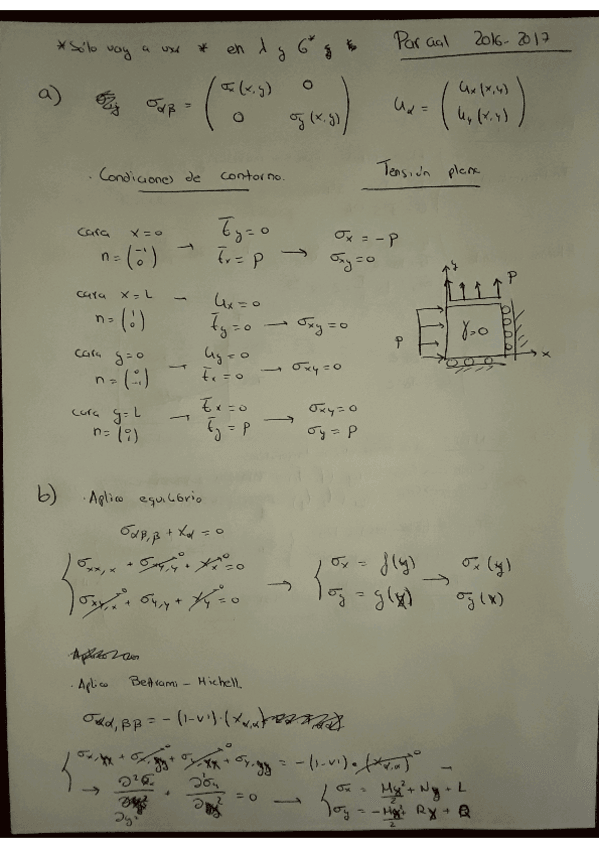 *Sólo voy a usar * en λ y G* y
Parcial 2016-2017
a) σαβ = ( σx(x,y) 0 ; 0 σy(x,y) ) uα = ( ux(x,y) ; uy(x,y) )
· Condiciones de contorno.
Tensión plana
cara x=0 → t̄y = 0 → σx = -P
n = (-1 0) t̄x = P σxy = 0
cara x=L → ux = 0
n = (1 0) t̄y = 0 → σxy = 0
cara y=0 → uy = 0
n = (0 -1) t̄x = 0 → σxy = 0
cara y=L → t̄x = 0 → σxy = 0
n = (0 1) t̄y = P σy = P
y
P
P
γ=0
x
b) · Aplico equilibrio
σαβ,β + Xα = 0
σxx,x + σxy,y + Xx = 0 → σx = f(y) → σx(y)
σxy,x + σy,y + Xy = 0 σy = g(x) σy(x)
· Aplico Beltrami - Michell.
σαα,ββ = -(1-ν')·(Xα,α)
σx,xx + σx,yy + σy,xx + σy,yy = -(1-ν')·(Xα,α)
→ ∂²σx + ∂²σy = 0 → σx = My²/2 + Ny + L
σy = -Mx²/2 Rx + Q